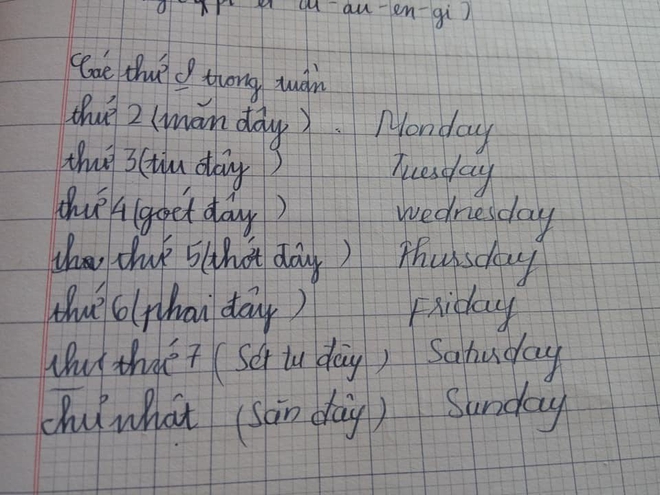 au-en-gi)
Các thứ trong tuần
thứ 2 (măn đây) . Monday
thứ 3 (tiu đây) Tuesday
thứ 4 (goét đây) Wednesday
thứ 5 (thớt đây) Thursday
thứ 6 (phai đây) Friday
thứ 7 (Sét tu đây) Saturday
chủ nhật (Săn đây) Sunday